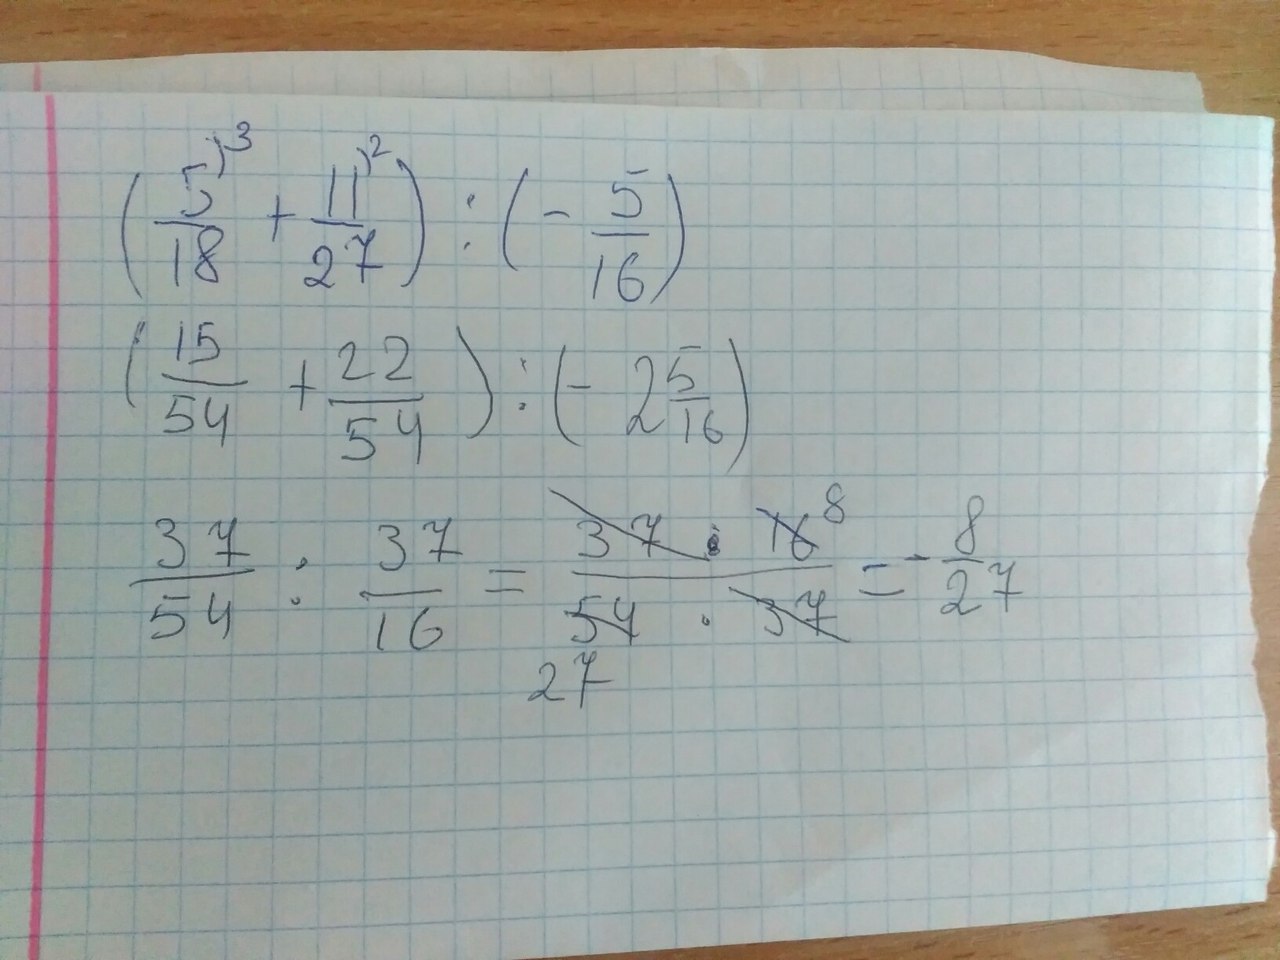 (5/18⁾³ + 11/27⁾²) : (- 5/16)
(15/54 + 22/54) : (- 2 5/16)
37/54 : 37/16 = 37 · 16 8 / 54 · 37 = - 8/27
27